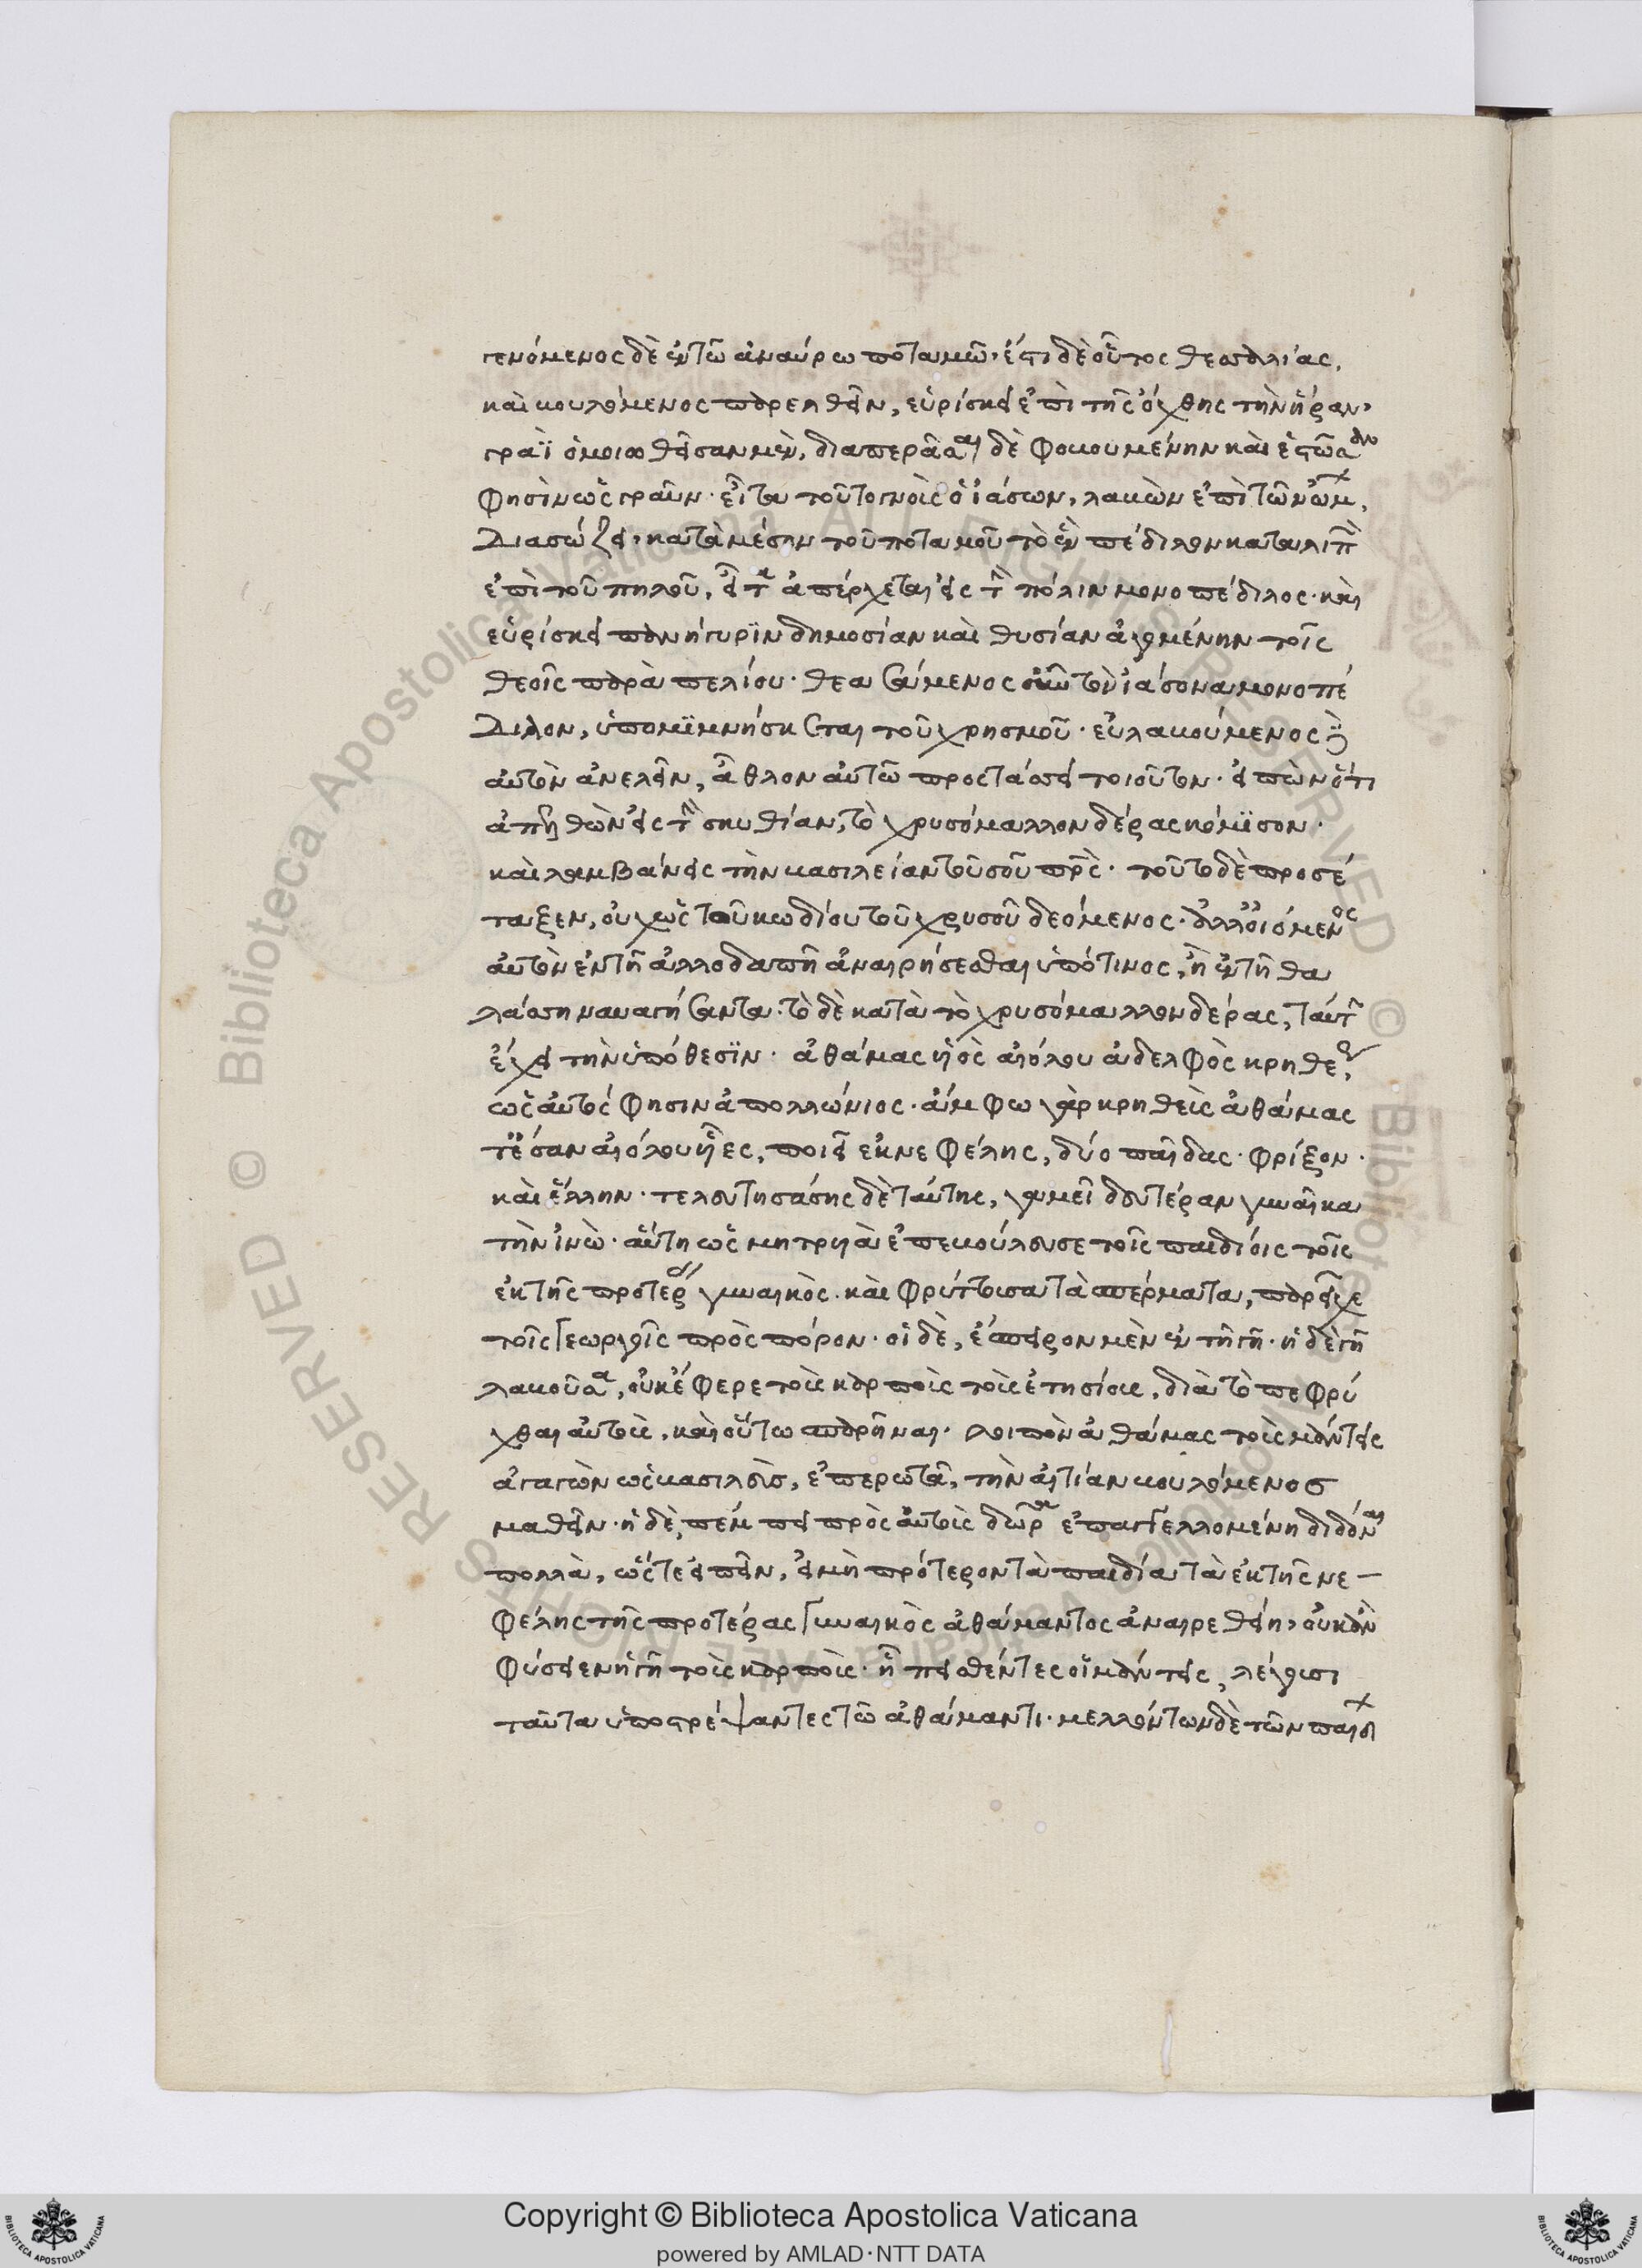 γενόμενος δὲ ἐν τῶ ἀναύρω ποταμῶ, ἔστι δὲ οὗτος θεσσαλίας,
καὶ βουλόμενος παρελθεῖν, εὑρίσκει ἐπὶ τῆς ὄχθης τὴν ἥραν,
γραῒ ὁμοιωθεῖσαν μὲν, διαπερᾶσαι δὲ φοβουμένην καὶ ἑστῶσαν
φησὶν ὡς γραῦν. εἶτα τοῦτο γνοὺς ὁ ἰάσων, λαβὼν ἐπὶ τῶν ὤμ,
διασώζει, κατὰ μέσην τοῦ ποταμοῦ τὸ ἓν πέδιλον καταλιπ
ἐπὶ τοῦ πηλοῦ, εἶτα ἀπέρχεται εἰς τὴν πόλιν μονοπέδιλος. καὶ
εὑρίσκει πανήγυρϊν δημοσίαν καὶ θυσίαν ἀγομένην τοῖς
θεοῖς παρὰ πελίου. θεασάμενος οὖν τὸν ἰάσονα μονοπέ
διλον, ὑπομϊμνήσκεται τοῦ χρησμοῦ. εὐλαβούμενος δὲ
αὐτὸν ἀνελεῖν, ἆθλον αὐτῶ προστάσσει τοιοῦτον. εἰπὼν ὅτι
ἀπελθὼν εἰς τὴν σκυθίαν, τὸ χρυσόμαλλον δέρας κόμϊσον.
καὶ λαμβάνεις τὴν βασιλείαν τοῦ σοῦ πρς. τοῦτο δὲ προσέ
ταξεν, οὐχ ὡς τοῦ κωδίου τοῦ χρυσοῦ δεόμενος. ἀλλ' οἰόμενος
αὐτὸν ἐν τῆ ἀλλοδαπῆ ἀναιρήσεσθαι ὑπό τινος, ἢ ἐν τῆ θα
λάσση ναυαγήσαντα. τὸ δὲ κατὰ τὸ χρυσόμαλλον δέρας, ταύτ
ἔχει τὴν ὑπόθεσϊν. ἀθάμας ὑὸς αἰόλου ἀδελφὸς κρηθέως,
ὡς αὐτός φησιν ἀπολλώνιος. ἄμφω γὰρ κρηθεὺς ἀθάμας
τ' ἔσαν αἰόλου υἷες, ποιεῖ ἐκ νεφέλης, δύο παῖδας. φρίξον.
καὶ ἕλλην. τελευτησάσης δὲ ταύτης, γαμεῖ δευτέραν γυναῖκα
τὴν ἰνὼ. αὕτη ὡς μητρυιὰ ἐπεβούλευσε τοῖς παιδίοις τοῖς
ἐκ τῆς προτέρας γυναικὸς. καὶ φρύττουσα τὰ σπέρματα, παρεῖχε
τοῖς γεωργοῖς πρὸς πόρον. οἱ δὲ, ἔσπειρον μὲν ἐν τῆ γῆ. ἡ δὲ γῆ
λαβοῦσα, οὐκ ἔφερε τοὺς καρποὺς τοὺς ἐτησίους, διὰ τὸ πεφρύ
χθαι αὐτοὺς, καὶ οὕτω σπαρῆναι. λοιπὸν ἀθάμας τοὺς μάντεις
ἀγαγὼν ὡς βασιλεὺς, ἐπερωτᾶ, τὴν αἰτίαν βουλόμενος
μαθεῖν. ἡ δὲ, πέμπει πρὸς αὐτοὺς δῶρα ἐπαγγελλομένη διδόναι
πολλὰ, ὥστε εἰπεῖν, εἰ μὴ πρότερον τὰ παιδία τὰ ἐκ τῆς νε-
φέλης τῆς προτέρας γυναικὸς ἀθάμαντος ἀναιρεθείη, οὐκ ἂν
φύσειεν ἡ γῆ τοὺς καρποὺς. ἧ πεισθέντες οἱ μάντεις, λέγουσι
ταῦτα ὑποστρέψαντες τῶ ἀθάμαντι. μελλόντων δὲ τῶν παιδ
Copyright © Biblioteca Apostolica Vaticana
powered by AMLAD·NTT DATA